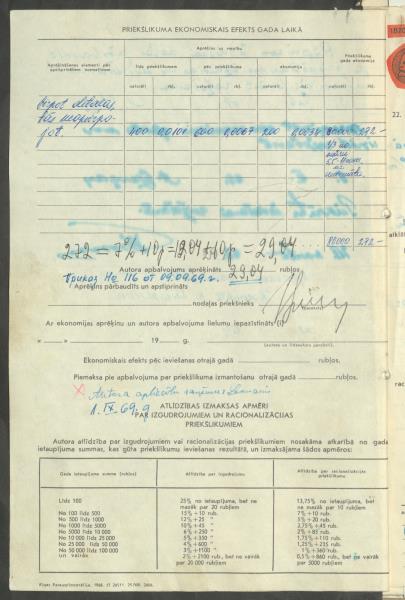 PRIEKŠLIKUMA EKONOMISKAIS EFEKTS GADA LAIKĀ
Aprēķināšanas elementi pēc apstiprinātiem normatīviem
Aprēķins uz vienību
Priekšlikuma gada ekonomija
līdz priekšlikumam
pēc priekšlikuma
ekonomija
naturāli rbļ. naturāli rbļ. naturāli rbļ. naturāli rbļ.
400 0,0101 600 0,0067 200 0,0034 80000 272-
80000 272-
272 = 7% + 10 p = 19,04 + 10 p. = 29,04
Autora apbalvojums aprēķināts 29,04 rubļos.
Приказ № 116 от 09.09.69 г.
Aprēķins pārbaudīts un apstiprināts
nodaļas priekšnieks
Ar ekonomijas aprēķinu un autora apbalvojuma lielumu iepazīstināts (i)
« » 19 g.
Ekonomiskais efekts pēc ieviešanas otrajā gadā rubļos.
Piemaksa pie apbalvojuma par priekšlikuma izmantošanu otrajā gadā rubļos.
Autora apliecību saņēmu
1. IX. 69. g
ATLĪDZĪBAS IZMAKSAS APMĒRI
PAR IZGUDROJUMIEM UN RACIONALIZĀCIJAS
PRIEKŠLIKUMIEM
Autora atlīdzība par izgudrojumiem vai racionalizācijas priekšlikumiem nosakāma atkarībā no gada
ietaupījuma summas, kas gūta priekšlikumu ieviešanas rezultātā, un izmaksājama šādos apmēros:
Gada ietaupījuma summa (rubļos) Atlīdzība par izgudrojumu Atlīdzība par racionalizācijas priekšlikumu
Līdz 100 25% no ietaupījuma, bet ne mazāk par 20 rubļiem 13,75% no ietaupījuma, bet ne mazāk par 10 rubļiem
No 100 līdz 500 15% + 10 rub. 7% + 10 rub.
No 500 līdz 1000 12% + 25 » 5% + 20 »
No 1000 līdz 5000 10% + 45 » 2,75% + 45 rub.
No 5000 līdz 10 000 6% + 250 » 2% + 85 rub.
No 10 000 līdz 25 000 5% + 350 » 1,75% + 110 rub.
No 25 000 līdz 50 000 4% + 600 » 1,25% + 235 rub.
No 50 000 līdz 100 000 3% + 1100 » 1% + 360 rub.
un vairāk 2% + 2100 » bet ne vairāk par 20 000 rubļiem 0,5% + 860 rub., bet ne vairāk par 5000 rubļiem